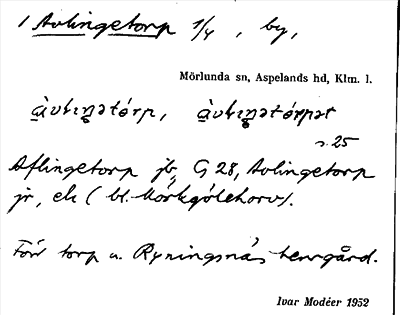 1 Avlingetorp 1/4, by,
Mörlunda sn, Aspelands hd, Klm. l.
àvlıŋetórp, àvlıŋetórpət
s. 25
Aflingetorp jb, G 28, Avlingetorp
jr, ek (bl. Mörkgölehorv).
Förr torp u. Ryningsnäs herrgård.
Ivar Modéer 1952